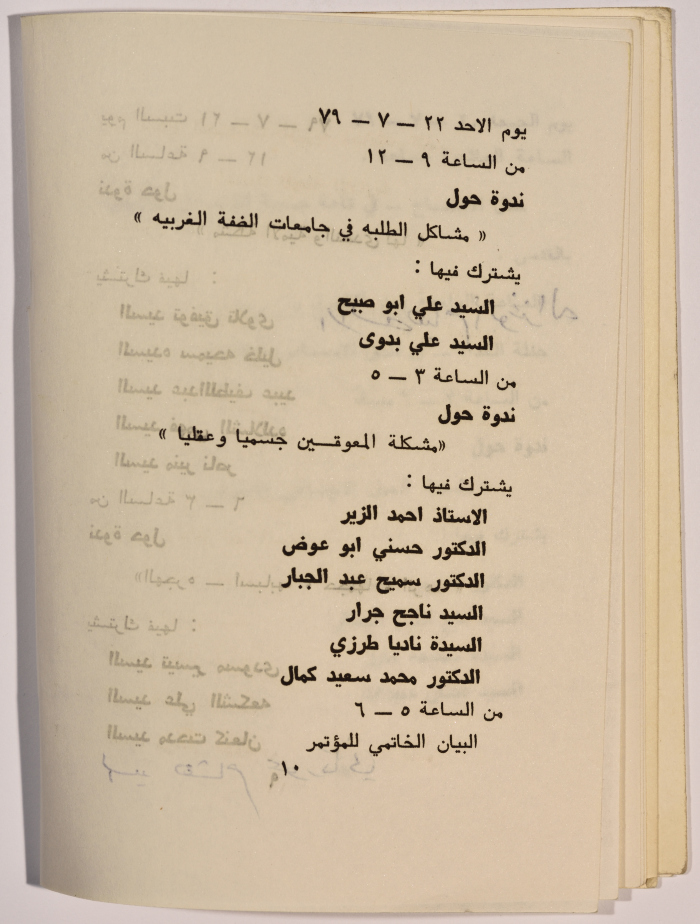 يوم الاحد ٢٢ — ٧ — ٧٩
من الساعة ٩ — ١٢
ندوة حول
« مشاكل الطلبه في جامعات الضفة الغربيه »
يشترك فيها :
السيد علي ابو صبيح
السيد علي بدوى
من الساعة ٣ — ٥
ندوة حول
«مشكلة المعوقــين جسميا وعقليا »
يشترك فيها :
الاستاذ احمد الزير
الدكتور حسني ابو عوض
الدكتور سميح عبد الجبار
السيد ناجح جرار
السيدة ناديا طرزي
الدكتور محمد سعيد كمال
من الساعة ٥ — ٦
البيان الخاتمي للمؤتمر
١٠